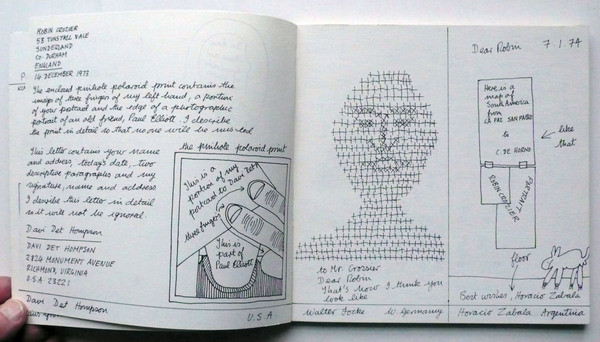 ROBIN CROZIER
5B TUNSTALL VALE
SUNDERLAND
CO. DURHAM
ENGLAND
14 DECEMBER 1973
The enclosed pinhole polaroid print contains the
image of three fingers of my left hand, a portion
of your postcard and the edge of a photographic
portrait of an old friend, Paul Elliott. I describe
the print in detail so that no one will be mis-led
This letter contains your name
and address, today's date, two
descriptive paragraphs and my
signature, name and address
I describe this letter in detail
so it will not be ignored.
Davi Det Hompson
DAVI DET HOMPSON
2824 MONUMENT AVENUE
RICHMOND, VIRGINIA
U.S.A 23221
the pinhole polaroid print
This is a
portion of my
postcard to Davi Det H
three fingers
This is
part of
Paul Elliott
Davi Det Hompson
U.S.A
to Mr. Crozier
Dear Robin
That's how I think you
look like
Walter Focke W. Germany
Dear Robin 7/1/74
Here is a
map of
South America
from
LA PAZ SAN PABLO
to
C. DE HORNO
like
that
PORTRAIT
ROBIN CROZIER
floor
Best wishes, Horacio Zabala
Horacio Zabala Argentina